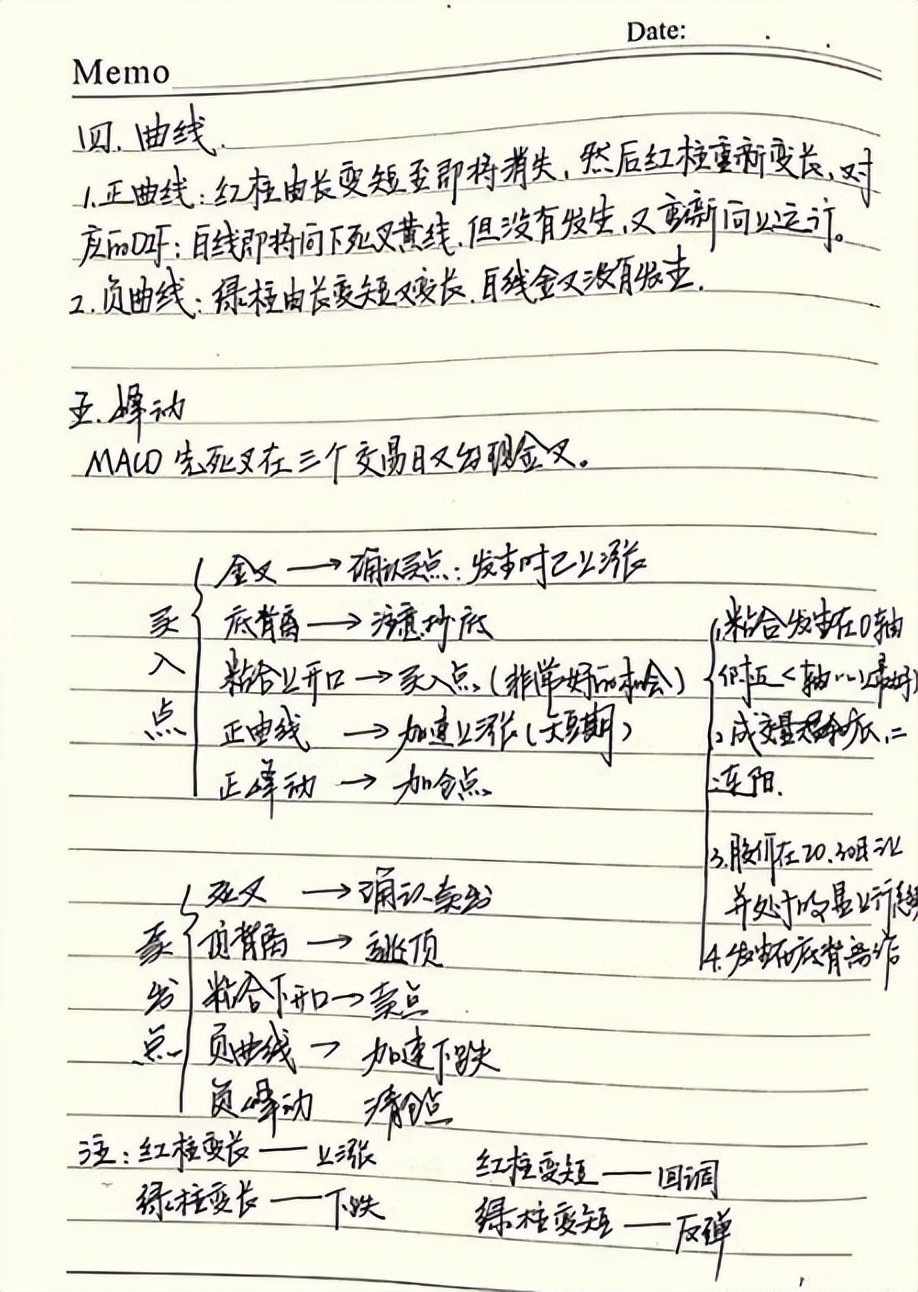 Date:
Memo
四.曲线.
1.正曲线:红柱由长变短至即将消失,然后红柱重新变长,对
应的DIF:白线即将向下死叉黄线.但没有发生,又重新向上运行。
2.负曲线:绿柱由长变短又变长.白线金叉没有发生.
五.峰动
MACD先死叉在三个交易日又出现金叉。
买入点
金叉→确认买点:发生时已上涨
底背离→注意抄底
粘合上开口→买入点(非常好的机会)
正曲线→加速上涨(短期)
正峰动→加仓点
1.粘合发生在0轴
附近<轴以上最好)
2.成交量
连阳.
3.股价在20.30日
并处于明显上行
4.发生在底背离后
卖出点
死叉→确认卖出
顶背离→逃顶
粘合下开口→卖点
负曲线→加速下跌
负峰动 清仓点
注:红柱变长——上涨 红柱变短——回调
绿柱变长——下跌 绿柱变短——反弹